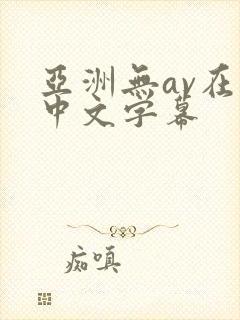 亞洲無av在
中文字幕
痴嗔